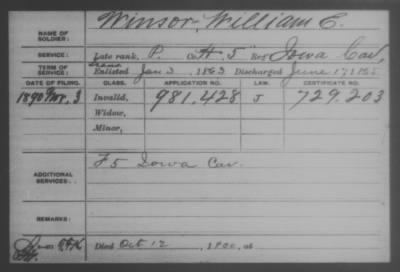 NAME OF SOLDIER: Winsor, William E.
SERVICE: Late rank, P. Co. H. 5 Reg Iowa Cav,
TERM OF SERVICE: Enlisted Jan 3, 1863 Discharged June 17, 1865
DATE OF FILING. CLASS. APPLICATION NO. LAW. CERTIFICATE NO.
1890 3 Invalid, 981.428 J 729.203
Widow,
Minor,
ADDITIONAL SERVICES: F5 Iowa Cav.
REMARKS:
Died Oct 12, 1900, at